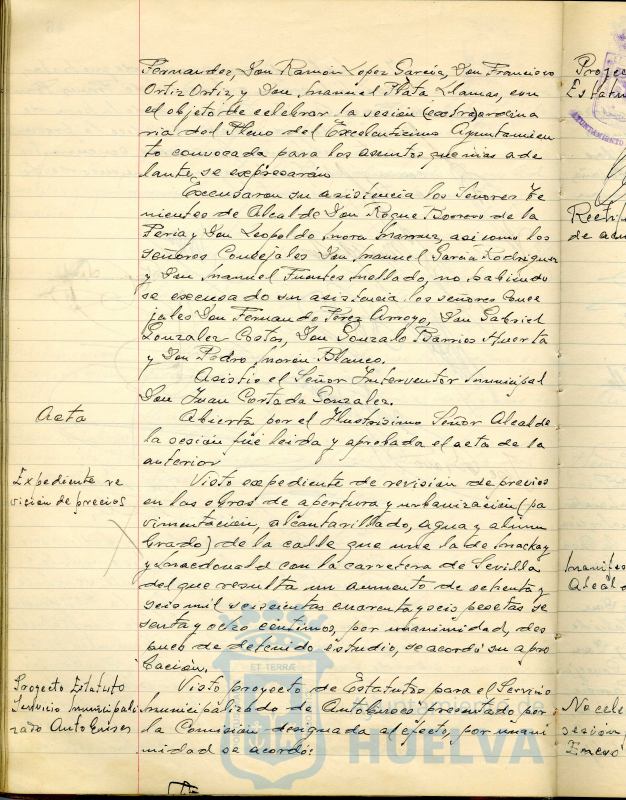 Fernandez, Don Ramón Lopez García, Don Francisco
Ortiz Ortiz y Don Manuel Plata Llamas, con
el objeto de celebrar la sesión (extra)ordina
ria del Pleno del Excelentísimo Ayuntamien
to convocada para los asuntos que mas ade
lante se expresarán
Excusaron su asistencia los Señores Te
nientes de Alcalde Don Roque Borrero de la
Feria y Don Leopoldo Mora así como los
Señores Concejales Don Manuel García Rodriguez
y Don Manuel Fuentes Mollado, no habiendo
se excusado su asistencia los señores Conce
jales Don Fernando Pérez Arroyo, Don Gabriel
Gonzalez Costas, Don Gonzalo Barrios Huerta
y Don Pedro Morón Blanco.
Asistio el Señor Interventor Municipal
Don Juan Cortada Gonzalez.
Acta
Abierta por el Ilustrisimo Señor Alcalde
la sesión fué leida y aprobada el acta de la
anterior
Expediente re
visión de precios
Visto expediente de revisión de precios
en las obras de apertura y urbanización (pa
vimentación, alcantarillado, agua y alum
brado) de la calle que une la de Mackay
y Macdonald con la carretera de Sevilla
del que resulta un aumento de setenta y
seis mil seiscientas cuarenta y seis pesetas se
senta y ocho centimos, por unanimidad, des
pues de detenido estudio, se acordó su apro
bación.
Proyecto Estatuto
Servicio Municipali
zado AutoBuses
Visto proyecto de Estatutos para el Servicio
Municipalizado de Autobuses presentado por
la Comisión designada al efecto, por unani
midad se acordó:
Proyec
Estatu
AYUNTAMIENTO
Rectifi
de
Manifes
Alcal
No cele
sesión
Enero
ET TERRÆ
Ayuntamiento de
HUELVA